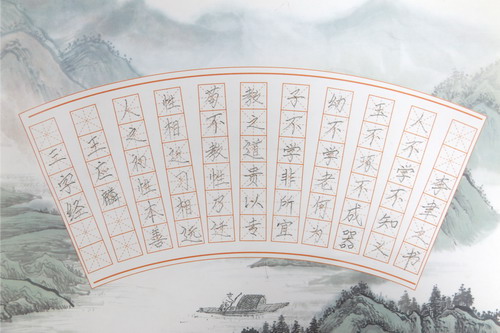 三字经
王应麟
人之初性本善
性相近习相远
苟不教性乃迁
教之道贵以专
子不学非所宜
幼不学老何为
玉不琢不成器
人不学不知义
之书